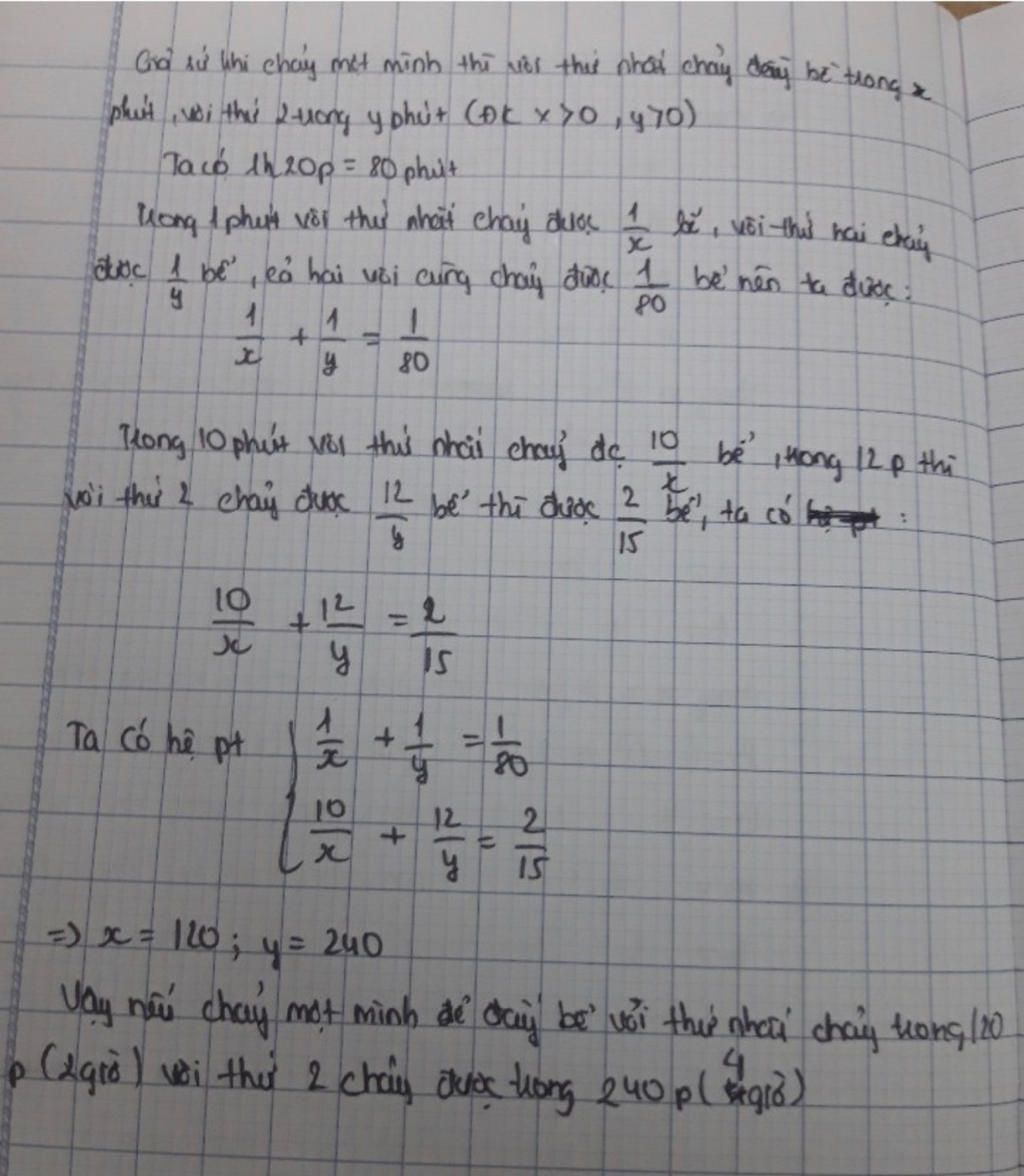 Giả sử khi chảy một mình thì vòi thứ nhất chảy đầy bể trong x
phút, vòi thứ 2 trong y phút (Đk x>0, y>0)
Ta có 1h20p = 80 phút
Trong 1 phút vòi thứ nhất chảy được 1/x bể, vòi thứ hai chảy
được 1/y bể, cả hai vòi cùng chảy được 1/80 bể nên ta được:
1/x + 1/y = 1/80
Trong 10 phút vòi thứ nhất chảy đc 10/x bể, trong 12p thì
vòi thứ 2 chảy được 12/y bể thì được 2/15 bể, ta có :
10/x + 12/y = 2/15
Ta có hệ pt { 1/x + 1/y = 1/80
10/x + 12/y = 2/15
=> x = 120; y = 240
Vậy nếu chảy một mình để đầy bể vòi thứ nhất chảy trong 120
p (2giờ) vòi thứ 2 chảy được trong 240p (4giờ)